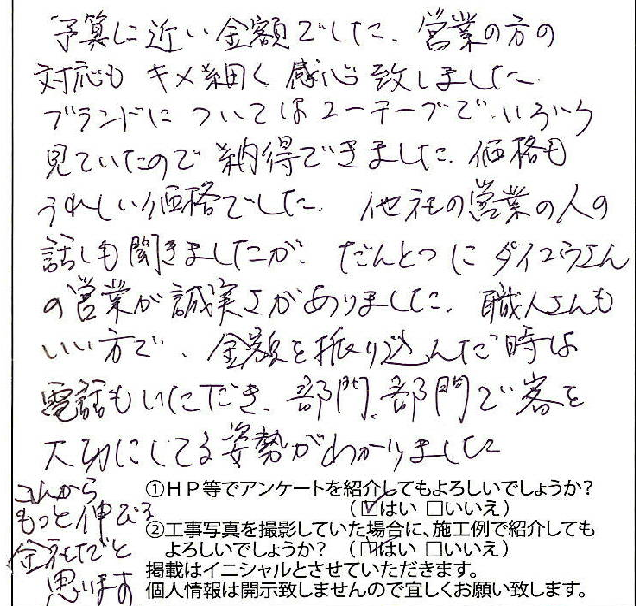 予算に近い金額でした。営業の方の
対応も キメ細く 感心致しました
ブランドについてはユーチューブで、いろいろ
見ていたので納得できました。価格も
うれしい価格でした。他社の営業の人の
話しも聞きましたが、だんとつに ダイユウさん
の営業が誠実さがありました。職人さんも
いい方で、金額を振り込んだ時は
電話もいただき、部門、部門で客を
大切にしてる姿勢がわかりました
これから
もっと伸びる
会社だと
思います
①HP等でアンケートを紹介してもよろしいでしょうか?
(☑はい □いいえ)
②工事写真を撮影していた場合に、施工例で紹介しても
よろしいでしょうか? (☑はい □いいえ)
掲載はイニシャルとさせていただきます。
個人情報は開示致しませんので宜しくお願い致します。